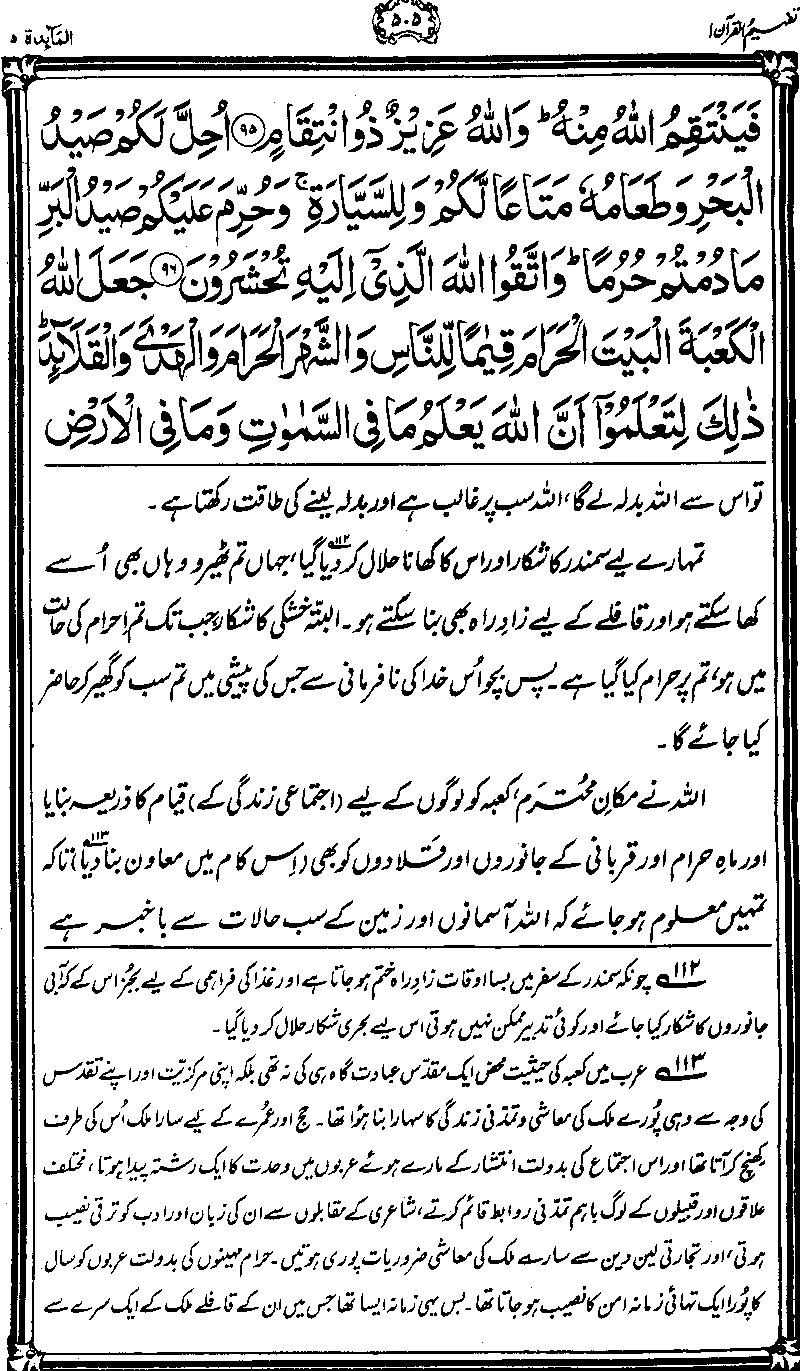 تفہیم القرآن ۱
۵۰۵
المآئدۃ ۵
فَيَنْتَقِمُ اللّٰهُ مِنْهُ ؕ وَاللّٰهُ عَزِيْزٌ ذُو انْتِقَامٍ ﴿۹۵﴾ اُحِلَّ لَكُمْ صَيْدُ
الْبَحْرِ وَطَعَامُهٗ مَتَاعًا لَّكُمْ وَلِلسَّيَّارَةِ ۚ وَحُرِّمَ عَلَيْكُمْ صَيْدُ الْبَرِّ
مَا دُمْتُمْ حُرُمًا ؕ وَاتَّقُوا اللّٰهَ الَّذِيْٓ اِلَيْهِ تُحْشَرُوْنَ ﴿۹۶﴾ جَعَلَ اللّٰهُ
الْكَعْبَةَ الْبَيْتَ الْحَرَامَ قِيٰمًا لِّلنَّاسِ وَالشَّهْرَ الْحَرَامَ وَالْهَدْيَ وَالْقَلَآئِدَ ؕ
ذٰلِكَ لِتَعْلَمُوْٓا اَنَّ اللّٰهَ يَعْلَمُ مَا فِي السَّمٰوٰتِ وَمَا فِي الْاَرْضِ
تو اس سے اللہ بدلہ لے گا، اللہ سب پر غالب ہے اور بدلہ لینے کی طاقت رکھتا ہے۔
تمہارے لیے سمندر کا شکار اور اس کا کھانا حلال کر دیا گیا۱۱۲، جہاں تم ٹھیرو وہاں بھی اُسے
کھا سکتے ہو اور قافلے کے لیے زادِ راہ بھی بنا سکتے ہو۔ البتّہ خشکی کا شکار، جب تک تم اِحرام کی حالت
میں ہو، تم پر حرام کیا گیا ہے۔ پس بچو اُس خدا کی نافرمانی سے جس کی پیشی میں تم سب کو گھیر کر حاضر
کیا جائے گا۔
اللہ نے مکانِ محترم، کعبہ کو لوگوں کے لیے (اجتماعی زندگی کے) قیام کا ذریعہ بنایا
اور ماہِ حرام اور قربانی کے جانوروں اور قَلادوں کو بھی (اِس کام میں معاون بنا دیا)۱۱۳ تاکہ
تمہیں معلوم ہو جائے کہ اللہ آسمانوں اور زمین کے سب حالات سے باخبر ہے
۱۱۲ چونکہ سمندر کے سفر میں بسا اوقات زادِ راہ ختم ہو جاتا ہے اور غذا کی فراہمی کے لیے بجُز اس کے کہ آبی
جانوروں کا شکار کیا جائے اور کوئی تدبیر ممکن نہیں ہوتی اس لیے بحری شکار حلال کر دیا گیا۔
۱۱۳ عرب میں کعبہ کی حیثیت محض ایک مقدّس عبادت گاہ ہی کی نہ تھی بلکہ اپنی مرکزیّت اور اپنے تقدّس
کی وجہ سے وہی پُورے ملک کی معاشی و تمدّنی زندگی کا سہارا بنا ہُوا تھا۔ حج اور عُمرے کے لیے سارا ملک اُس کی طرف
کھنچ کر آتا تھا اور اس اجتماع کی بدولت انتشار کے مارے ہوئے عربوں میں وحدت کا ایک رشتہ پیدا ہوتا، مختلف
علاقوں اور قبیلوں کے لوگ باہم تمدّنی روابط قائم کرتے، شاعری کے مقابلوں سے ان کی زبان اور ادب کو ترقی نصیب
ہوتی، اور تجارتی لین دین سے سارے ملک کی معاشی ضروریات پوری ہوتیں۔ حرام مہینوں کی بدولت عربوں کو سال
کا پُورا ایک تہائی زمانہ امن کا نصیب ہو جاتا تھا۔ بس یہی زمانہ ایسا تھا جس میں ان کے قافلے ملک کے ایک سرے سے